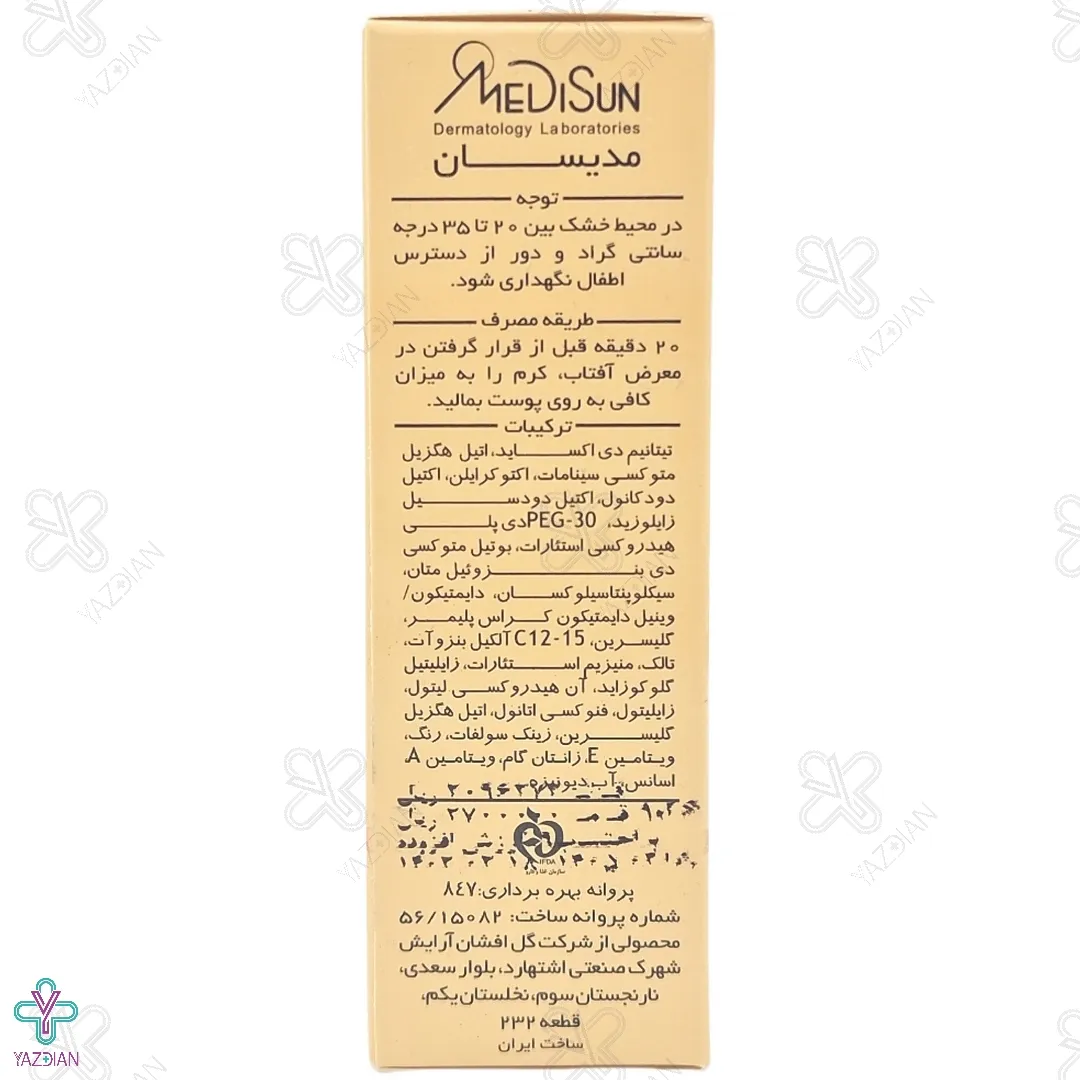 MEDISUN
Dermatology Laboratories
مدیسان
توجه
در محیط خشک بین ۲۰ تا ۳۵ درجه
سانتی گراد و دور از دسترس
اطفال نگهداری شود.
طریقه مصرف
۲۰ دقیقه قبل از قرار گرفتن در
معرض آفتاب، کرم را به میزان
کافی به روی پوست بمالید.
ترکیبات
تیتانیم دی اکساید، اتیل هگزیل
متوکسی سینامات، اکتوکرایلن، اکتیل
دودکانول، اکتیل دودسیل
زایلوزید، PEG-30 دی پلی
هیدروکسی استئارات، بوتیل متوکسی
دی بنزوئیل متان،
سیکلوپنتاسیلوکسان، دایمتیکون/
وینیل دایمتیکون کراس پلیمر،
گلیسرین، C12-15 آلکیل بنزوآت،
تالک، منیزیم استئارات، زایلیتیل
گلوکوزاید، آن هیدروکسی لیتول،
زایلیتول، فنوکسی اتانول، اتیل هگزیل
گلیسرین، زینک سولفات، رنگ،
ویتامین E، زانتان گام، ویتامین A،
اسانس، آب دیونیزه
ریال
ریال
ارزش افزوده
IFDA
سازمان غذا و دارو
پروانه بهره برداری: ۸٤۷
شماره پروانه ساخت: ۵۶/۱۵۰۸۲
محصولی از شرکت گل افشان آرایش
شهرک صنعتی اشتهارد، بلوار سعدی،
نارنجستان سوم، نخلستان یکم،
قطعه ۲۳۲
ساخت ایران
YAZDIAN